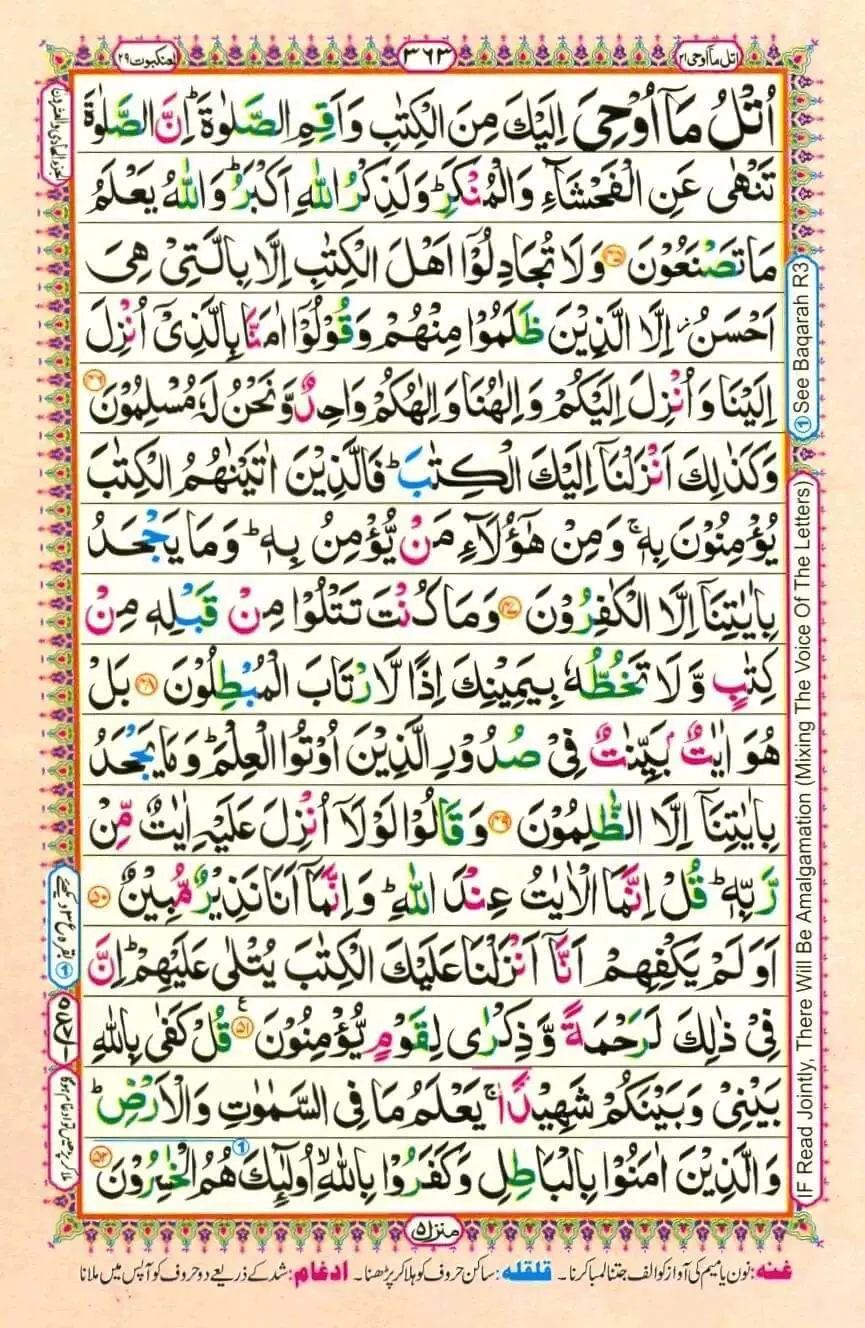 اتل ماۤ اوحی ۲۱
۳۶۳
العنکبوت ۲۹
اُتْلُ مَاۤ اُوْحِیَ اِلَیْكَ مِنَ الْكِتٰبِ وَاَقِمِ الصَّلٰوةَ ؕ اِنَّ الصَّلٰوةَ
تَنْهٰی عَنِ الْفَحْشَآءِ وَالْمُنْكَرِ ؕ وَلَذِكْرُ اللّٰهِ اَكْبَرُ ؕ وَاللّٰهُ یَعْلَمُ
مَا تَصْنَعُوْنَ ﴿۴۵﴾ وَلَا تُجَادِلُوْۤا اَهْلَ الْكِتٰبِ اِلَّا بِالَّتِیْ هِیَ
اَحْسَنُ ۖ اِلَّا الَّذِیْنَ ظَلَمُوْا مِنْهُمْ وَقُوْلُوْۤا اٰمَنَّا بِالَّذِیْۤ اُنْزِلَ
اِلَیْنَا وَاُنْزِلَ اِلَیْكُمْ وَاِلٰهُنَا وَاِلٰهُكُمْ وَاحِدٌ وَّنَحْنُ لَهٗ مُسْلِمُوْنَ ﴿۴۶﴾
وَكَذٰلِكَ اَنْزَلْنَاۤ اِلَیْكَ الْكِتٰبَ ؕ فَالَّذِیْنَ اٰتَیْنٰهُمُ الْكِتٰبَ
یُؤْمِنُوْنَ بِهٖ ۚ وَمِنْ هٰۤؤُلَآءِ مَنْ یُّؤْمِنُ بِهٖ ؕ وَمَا یَجْحَدُ
بِاٰیٰتِنَاۤ اِلَّا الْكٰفِرُوْنَ ﴿۴۷﴾ وَمَا كُنْتَ تَتْلُوْا مِنْ قَبْلِهٖ مِنْ
كِتٰبٍ وَّلَا تَخُطُّهٗ بِیَمِیْنِكَ اِذًا لَّارْتَابَ الْمُبْطِلُوْنَ ﴿۴۸﴾ بَلْ
هُوَ اٰیٰتٌۢ بَیِّنٰتٌ فِیْ صُدُوْرِ الَّذِیْنَ اُوْتُوا الْعِلْمَ ؕ وَمَا یَجْحَدُ
بِاٰیٰتِنَاۤ اِلَّا الظّٰلِمُوْنَ ﴿۴۹﴾ وَقَالُوْا لَوْلَاۤ اُنْزِلَ عَلَیْهِ اٰیٰتٌ مِّنْ
رَّبِّهٖ ؕ قُلْ اِنَّمَا الْاٰیٰتُ عِنْدَ اللّٰهِ ؕ وَاِنَّمَاۤ اَنَا نَذِیْرٌ مُّبِیْنٌ ﴿۵۰﴾
اَوَلَمْ یَكْفِهِمْ اَنَّاۤ اَنْزَلْنَا عَلَیْكَ الْكِتٰبَ یُتْلٰی عَلَیْهِمْ ؕ اِنَّ
فِیْ ذٰلِكَ لَرَحْمَةً وَّذِكْرٰی لِقَوْمٍ یُّؤْمِنُوْنَ ﴿۵۱﴾ ع قُلْ كَفٰی بِاللّٰهِ
بَیْنِیْ وَبَیْنَكُمْ شَهِیْدًا ۚ یَعْلَمُ مَا فِی السَّمٰوٰتِ وَالْاَرْضِ ؕ
وَالَّذِیْنَ اٰمَنُوْا بِالْبَاطِلِ وَكَفَرُوْا بِاللّٰهِ ۙ اُولٰٓئِكَ هُمُ الْخٰسِرُوْنَ ﴿۵۲﴾
منزل ۵
غنه: نون یا میم کی آواز کو الف جتنا لمبا کرنا۔ قلقله: ساکن حروف کو ہلا کر پڑھنا۔ ادغام: شد کے ذریعے دو حروف کو آپس میں ملانا
① See Baqarah R3
IF Read Jointly, There Will Be Amalgamation (Mixing The Voice Of The Letters)
الجزء الحادی والعشرون